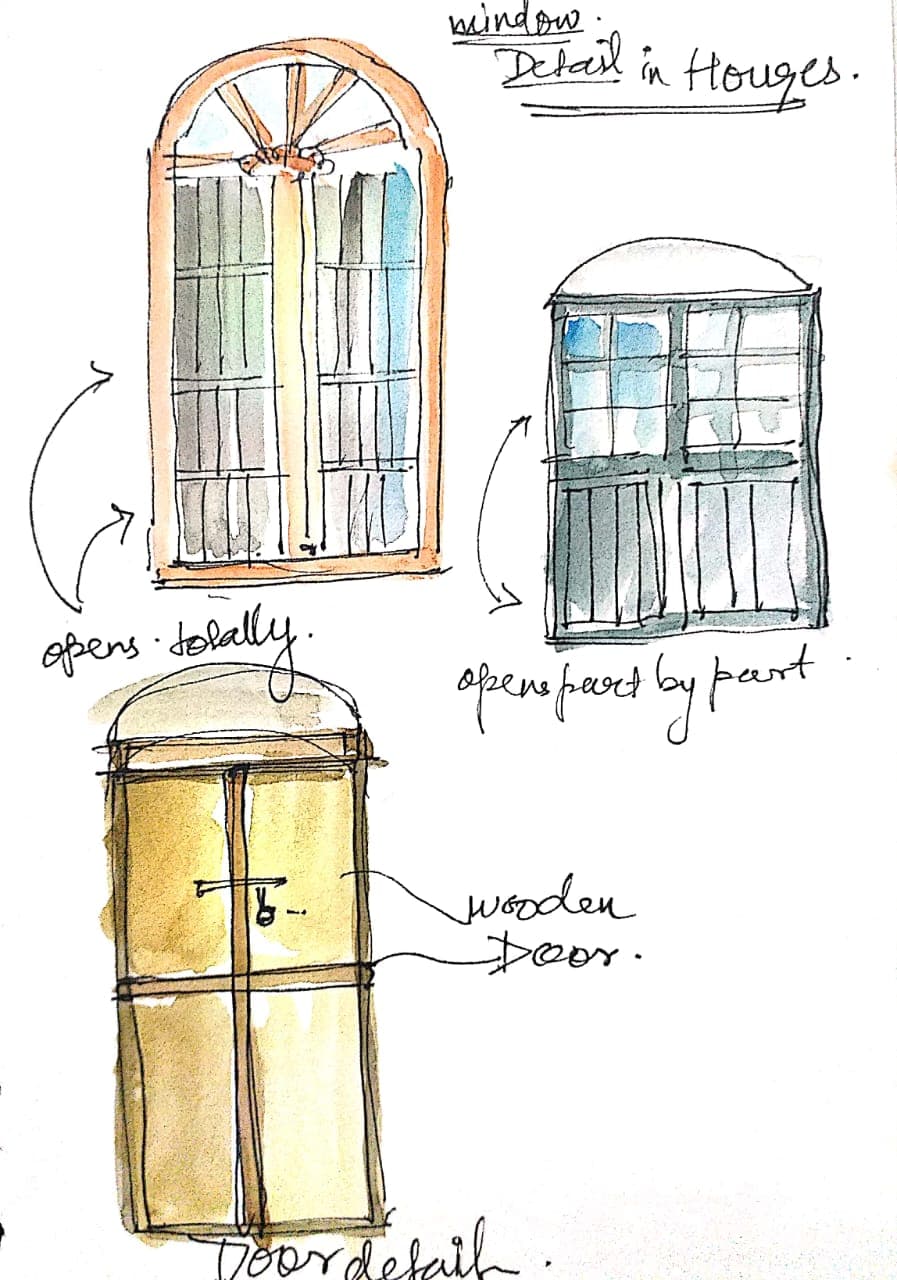 window.
Detail in Houses.
opens. totally.
opens part by part.
wooden
Door.
Door detail.